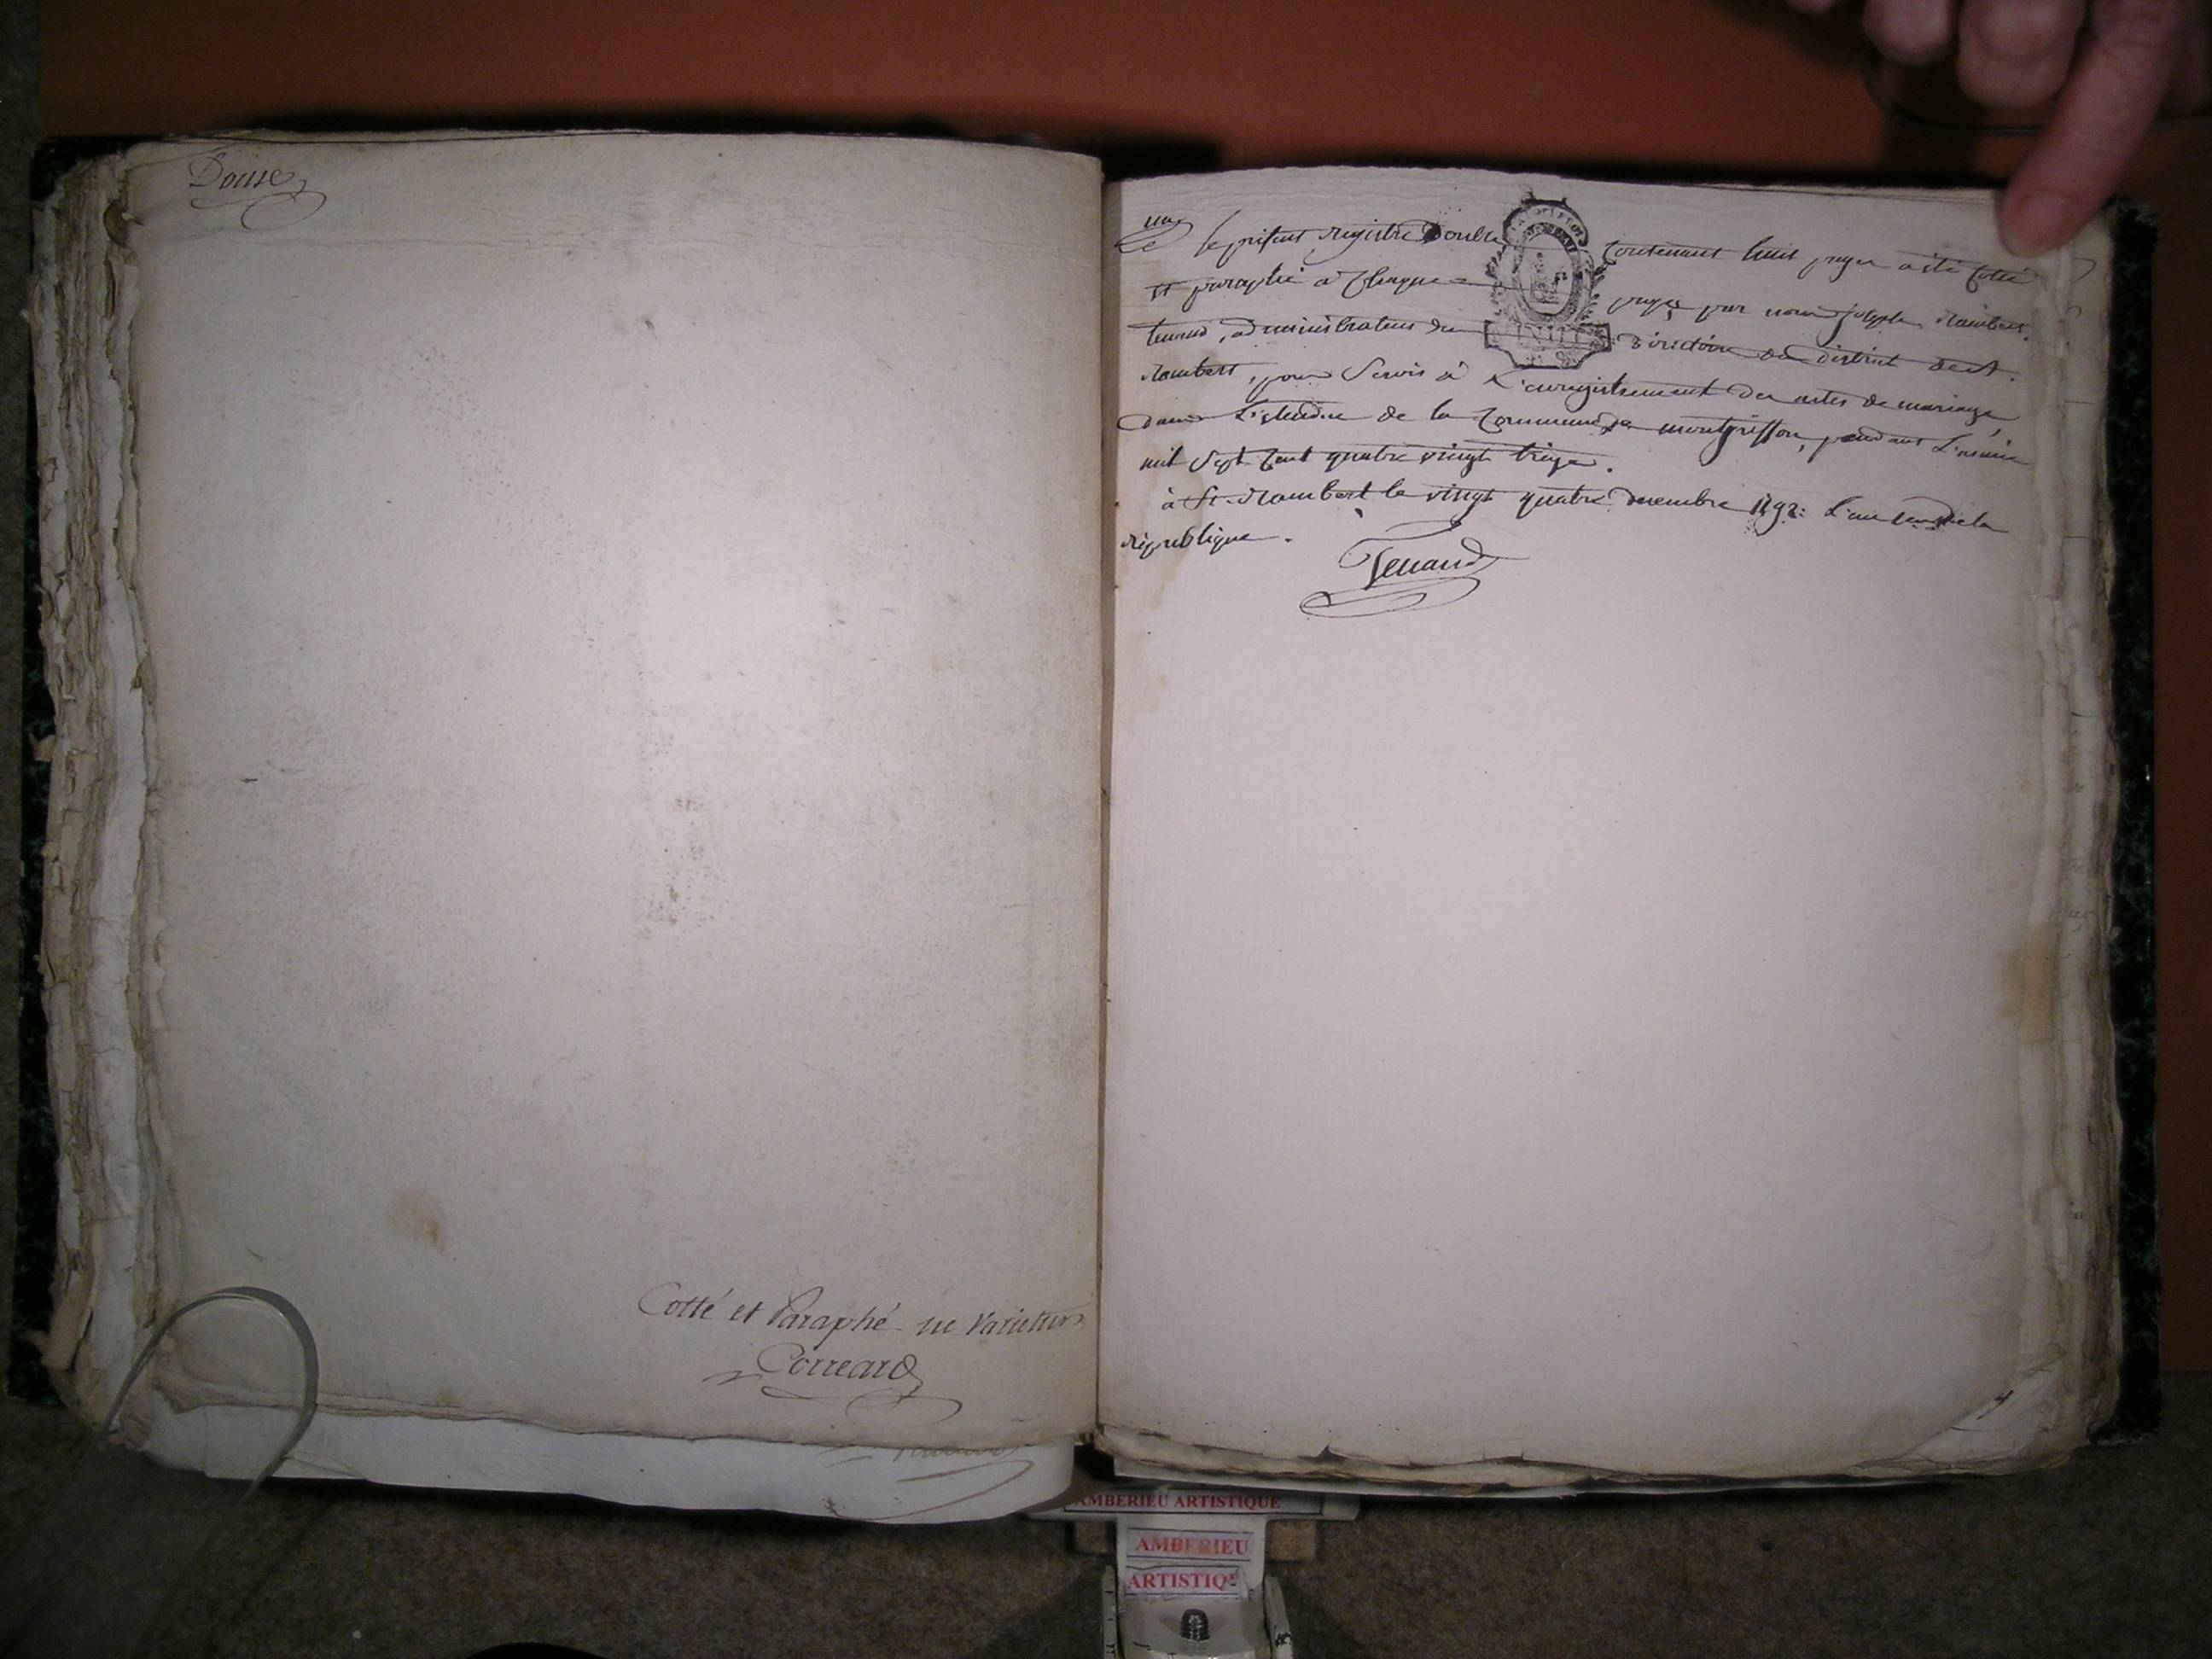 Douse
Cotté et Paraphé ne Varietur
Correard
un
Le present registre double contenant huit pages a été cotté
et paraphé a chaque page par nous joseph rambert
tenand, administrateur du Directoire du district de st.
rambert, pour servir à L'enregistrement des actes de mariage,
dans L'etendue de la commune de montgriffon, pendant L'année
mil sept cent quatre vingt treize.
à St. rambert le vingt quatre decembre 1792. L'an de la
république.
Tenand
AMBERIEU ARTISTIQUE
AMBERIEU
ARTISTIQUE